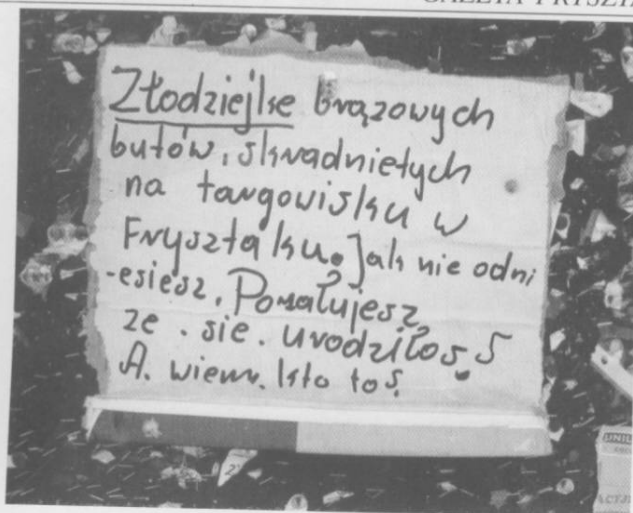 Złodziejke brązowych
butów, skradniętych
na targowisku w
Frysztaku. Jak nie odni
-esiesz. Pożałujesz
że . sie . urodziłoś. Ś
A. wiem. kto toś.
UNIL